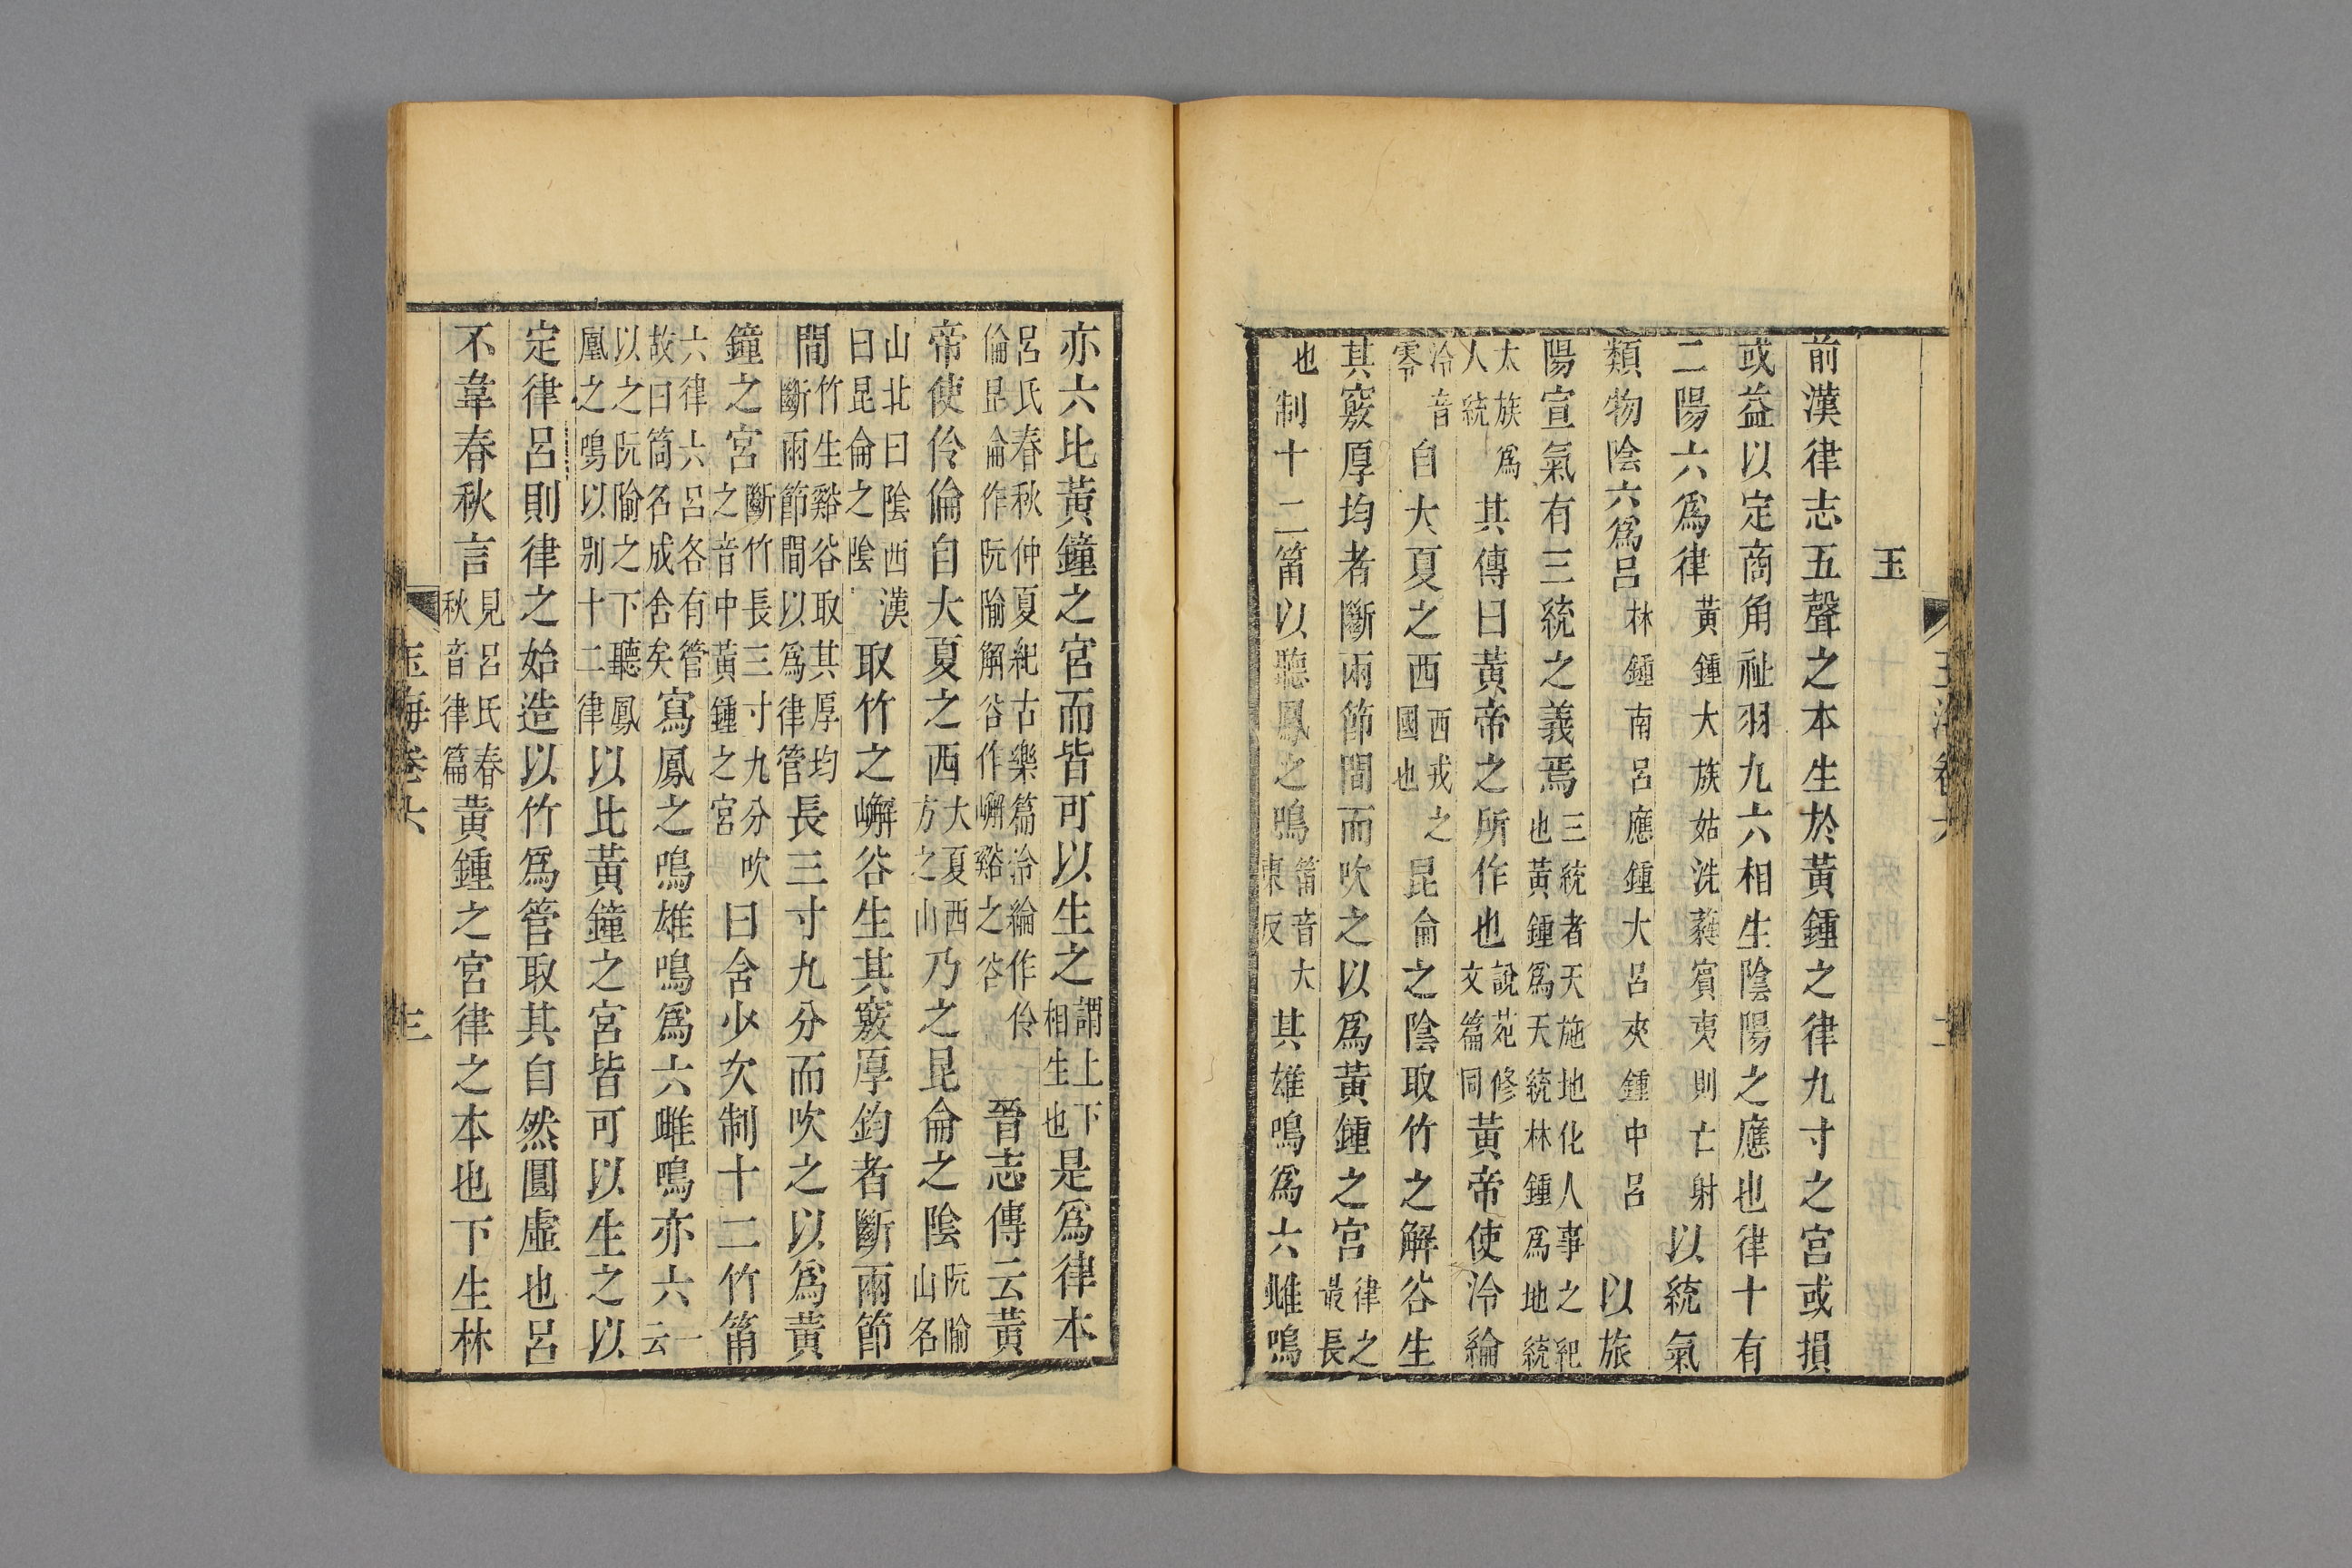 玉海卷六
玉
前漢律志五聲之本生於黃鍾之律九寸之宮或損
或益以定商角祉羽九六相生陰陽之應也律十有
二陽六爲律黃鍾大族姑洗蕤賓夷則亡射以統氣
類物陰六爲呂林鍾南呂應鍾大呂夾鍾中呂以旅
陽宣氣有三統之義焉三統者天施地化人事之紀也黃鍾爲天統林鍾爲地統
太族爲人統其傳曰黃帝之所作也說苑修文篇同黃帝使泠綸
泠音零自大夏之西西戎之國也昆侖之陰取竹之解谷生
其竅厚均者斷兩節間而吹之以爲黃鍾之宮律之最長
也制十二筩以聽鳳之鳴筩音大東反其雄鳴爲六雌鳴
亦六比黃鐘之宮而皆可以生之謂上下相生也是爲律本
呂氏春秋仲夏紀古樂篇泠綸作伶倫昆侖作阮隃解谷作嶰谿之谷晉志傳云黃
帝使伶倫自大夏之西大夏西方之山乃之昆侖之陰阮隃山名
山北曰陰西漢曰昆侖之陰取竹之嶰谷生其竅厚鈞者斷兩節
間竹生谿谷取其厚均斷兩節間以爲律管長三寸九分而吹之以爲黃
鐘之宮斷竹長三寸九分吹之音中黃鍾之宮曰舍少次制十二竹筩
六律六呂各有管故曰筒名成舍矣寫鳳之鳴雄鳴爲六雌鳴亦六一云
以之阮隃之下聽鳳凰之鳴以別十二律以比黃鐘之宮皆可以生之以
定律呂則律之始造以竹爲管取其自然圓虛也呂
不韋春秋言見呂氏春秋音律篇黃鍾之宮律之本也下生林
玉海卷六 三